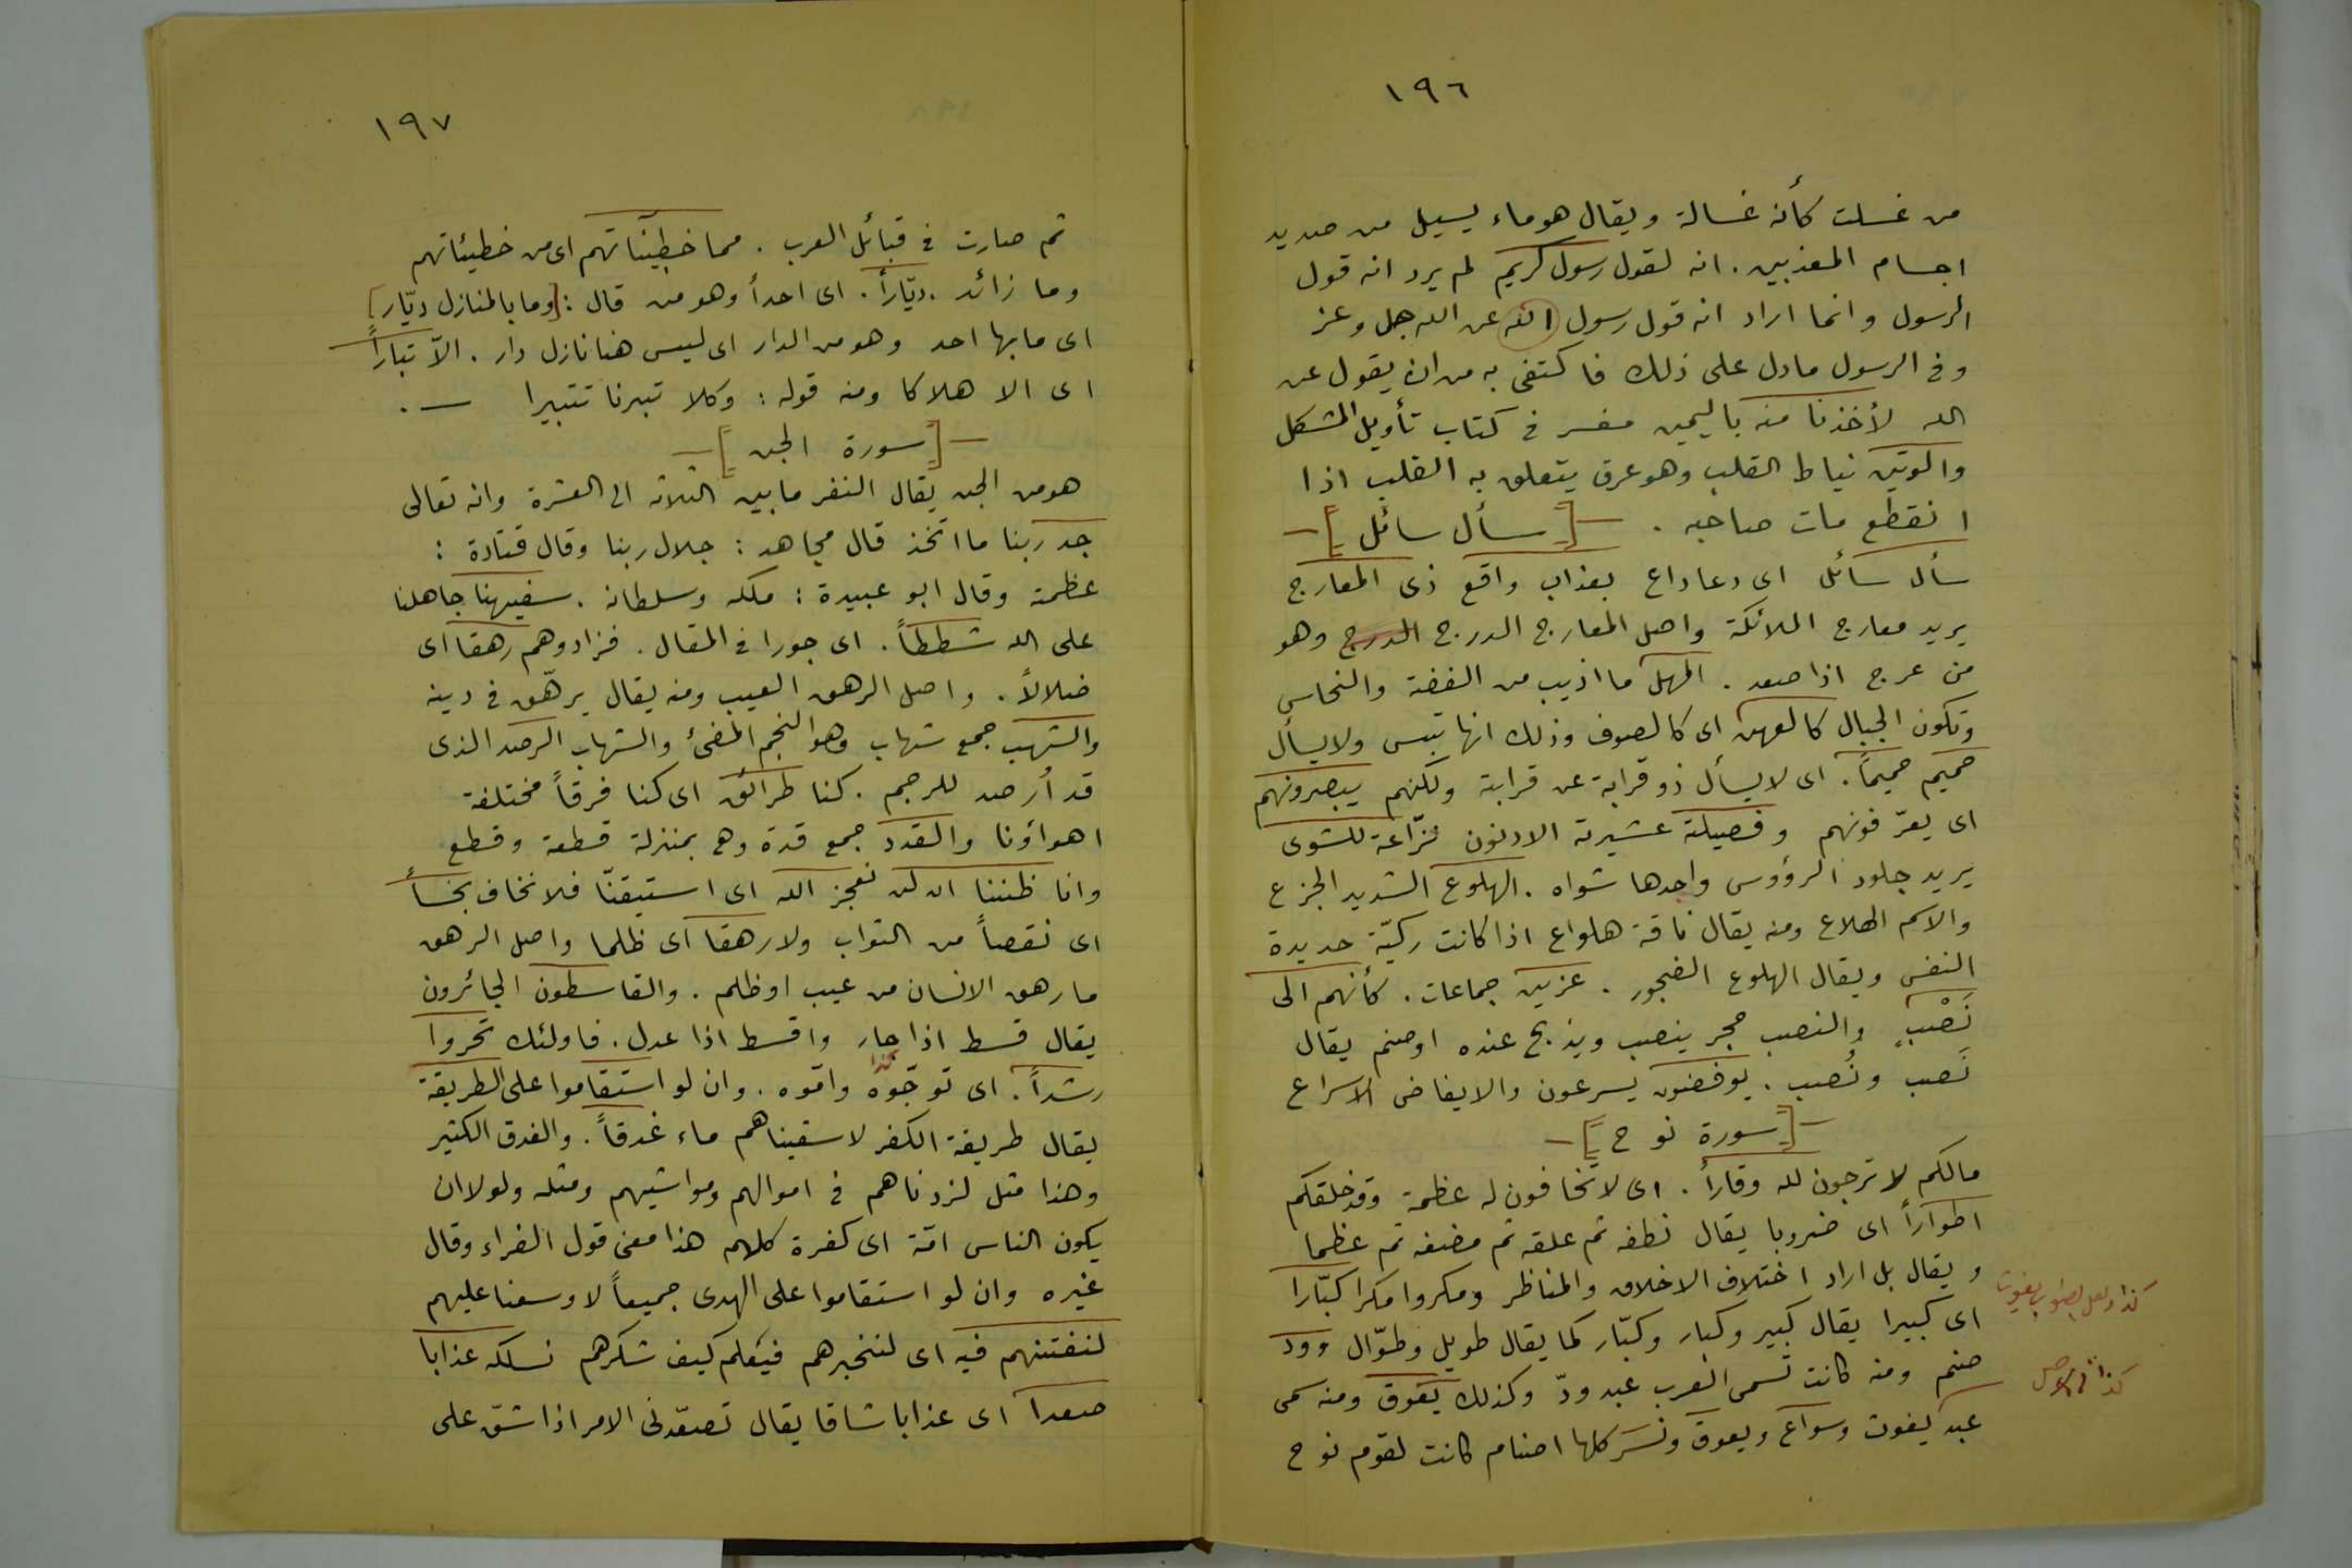 ١٩٦
من غسلت كأنه غسالة ويقال هو ماء يسيل من صديد
اجسام المعذبين . انه لقول رسول كريم لم يرد انه قول
الرسول وانما اراد انه قول رسول الله عن الله جل وعز
وفى الرسول مادل على ذلك فاكتفى به من ان يقول عن
الله لأخذنا منه باليمين مفسر فى كتاب تأويل المشكل
والوتين نياط القلب وهو عرق يتعلق به القلب اذا
انقطع مات صاحبه . —[ سأل سائل ]—
سأل سائل اى دعا داع بعذاب واقع ذى المعارج
يريد معارج الملائكة واصل المعارج الدرج الدرج وهو
من عرج اذا صعد . المهل ما اذيب من الفضة والنحاس
وتكون الجبال كالعهن اى كالصوف وذلك انها تبس ولا يسأل
حميم حميماً . اى لا يسأل ذو قرابة عن قرابة ولكنهم يبصرونهم
اى يعرّفونهم وفصيلته عشيرته الادنون نزّاعة للشوى
يريد جلود الرؤوس واحدها شواه . الهلوع الشديد الجزع
والاسم الهلاع ومنه يقال ناقة هلواع اذا كانت ركيّة حديدة
النفس ويقال الهلوع الضجور . عزين جماعات . كأنهم الى
نَصْبٍ والنصب حجر ينصب ويذبح عنده او صنم يقال
نَصب ونُصب . يوفضون يسرعون والايفاض الاسراع
—[ سورة نوح ]—
مالكم لا ترجون لله وقاراً . اى لا تخافون له عظمة وقد خلقكم
اطواراً اى ضروبا يقال نطفه ثم علقه ثم مضغه ثم عظما
ويقال بل اراد اختلاف الاخلاق والمناظر ومكروا مكرا كبّارا
اى كبيرا يقال كبير وكبار وكبّار كما يقال طويل وطوّال وود
صنم ومنه كانت تسمى العرب عبد ودّ وكذلك يعوق ومنه سمى
عبد يغوث وسواع ويعوق ونسر كلها اصنام كانت لقوم نوح
كذا ولعل الصواب يغوث
كذا فى الاصل
١٩٧
ثم صارت فى قبائل العرب . مما خطيئاتهم اى من خطيئاتهم
وما زائد . ديّاراً . اى احداً وهو من قال : [وما بالمنازل ديّار]
اى ما بها احد وهو من الدار اى ليس هنا نازل دار . الاّ تباراً
اى الا هلاكا ومنه قوله : وكلا تبرنا تتبيرا — .
—[ سورة الجن ]—
هو من الجن يقال النفر ما بين الثلاثه الى العشرة وانه تعالى
جد ربنا ما اتخذ قال مجاهد : جلال ربنا وقال قتادة :
عظمته وقال ابو عبيدة : ملكه وسلطانه . سفيهنا جاهلنا
على الله شططاً . اى جورا فى المقال . فزادوهم رهقا اى
ضلالاً . واصل الرهق العيب ومنه يقال يرهّق فى دينه
والشهب جمع شهاب وهو النجم المضئ والشهاب الرصد الذى
قد اُرصد للرجم . كنا طرائق اى كنا فرقاً مختلفة
اهواؤنا والقدد جمع قدة وهى بمنزلة قطعة وقطع
وانا ظننا ان لن نعجز الله اى استيقنّا فلا نخاف بخساً
اى نقصاً من الثواب ولا رهقا اى ظلما واصل الرهق
ما رهق الانسان من عيب او ظلم . والقاسطون الجائرون
يقال قسط اذا جار واقسط اذا عدل . فاولئك تحروا
كذا
رشداً . اى توخّوه واتوه . وان لو استقاموا على الطريقة
يقال طريقة الكفر لاسقيناهم ماء غدقاً . والغدق الكثير
وهذا مثل لزدناهم فى اموالهم ومواشيهم ومثله ولولا ان
يكون الناس امّة اى كفرة كلهم هذا معنى قول الفراء وقال
غيره وان لو استقاموا على الهدى جميعاً لاوسعنا عليهم
لنفتنهم فيه اى لنختبرهم فيعلم كيف شكرهم نسلكه عذابا
صعدا اى عذابا شاقا يقال تصعّدنى الامر اذا شق على